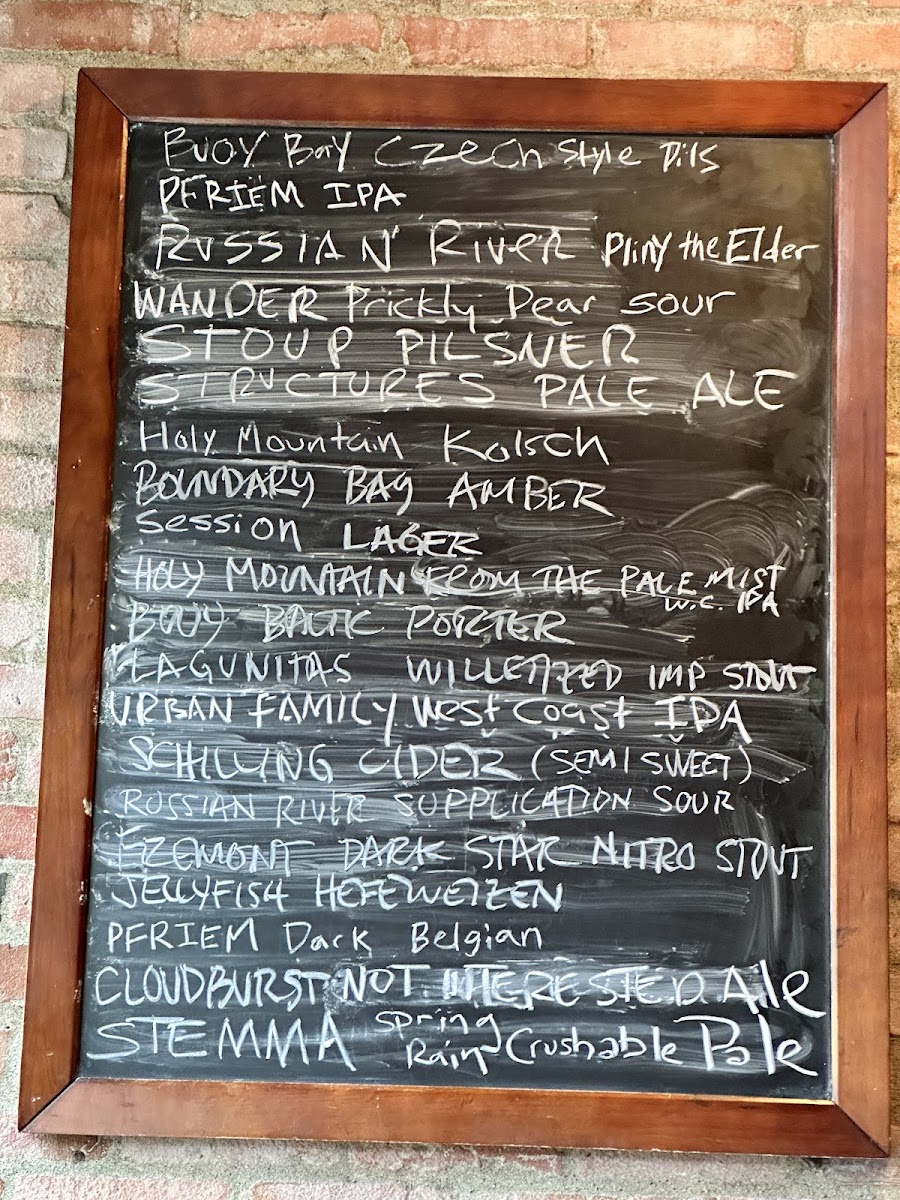 BUOY BAY CZECH Style Pils
PFRIEM IPA
RUSSIAN RIVER Pliny the Elder
WANDER Prickly Pear SOUR
STOUP PILSNER
STRUCTURES PALE ALE
Holy Mountain Kolsch
BOUNDARY BAY AMBER
Session LAGER
HOLY MOUNTAIN FROM THE PALE MIST
W.C. IPA
BUOY BALTIC PORTER
LAGUNITAS WILLETIZED IMP STOUT
URBAN FAMILY West Coast IPA
SCHILLING CIDER (SEMI SWEET)
RUSSIAN RIVER SUPPLICATION SOUR
FREMONT DARK STAR NITRO STOUT
JELLYFISH HEFEWEIZEN
PFRIEM Dark Belgian
CLOUDBURST NOT INTERESTED Ale
STEMMA Spring Rain Crushable Pale